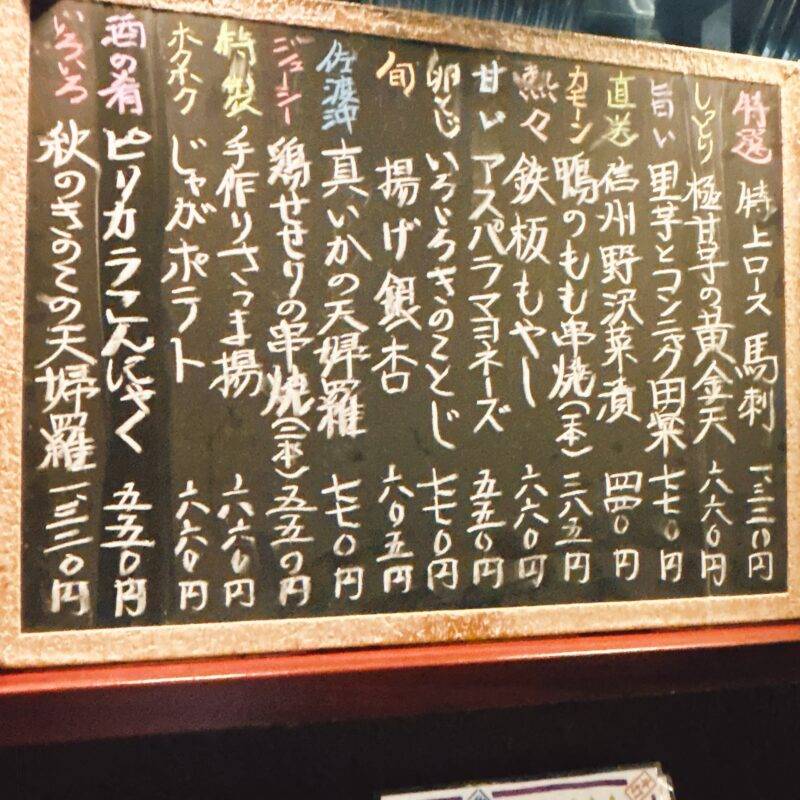 特選 特上ロース馬刺 一、三二〇円
しっとり 極甘芋の黄金天 六六〇円
旨い 里芋とコンニャク田楽 七七〇円
直送 信州野沢菜漬 四四〇円
カモーン 鴨のもも串焼(一本) 三八五円
熱々 鉄板もやし 六六〇円
甘い アスパラマヨネーズ 五五〇円
卵とじ いろいろきのことじ 七七〇円
旬 揚げ銀杏 六〇五円
佐渡沖 真いかの天婦羅 七七〇円
ジューシー 鶏せせりの串焼(二本) 五五〇円
特製 手作りさつま揚 六六〇円
ホクホク じゃがポテト 六六〇円
酒の肴 ピリカラこんにゃく 五五〇円
いろいろ 秋のきのこの天婦羅 一、三二〇円